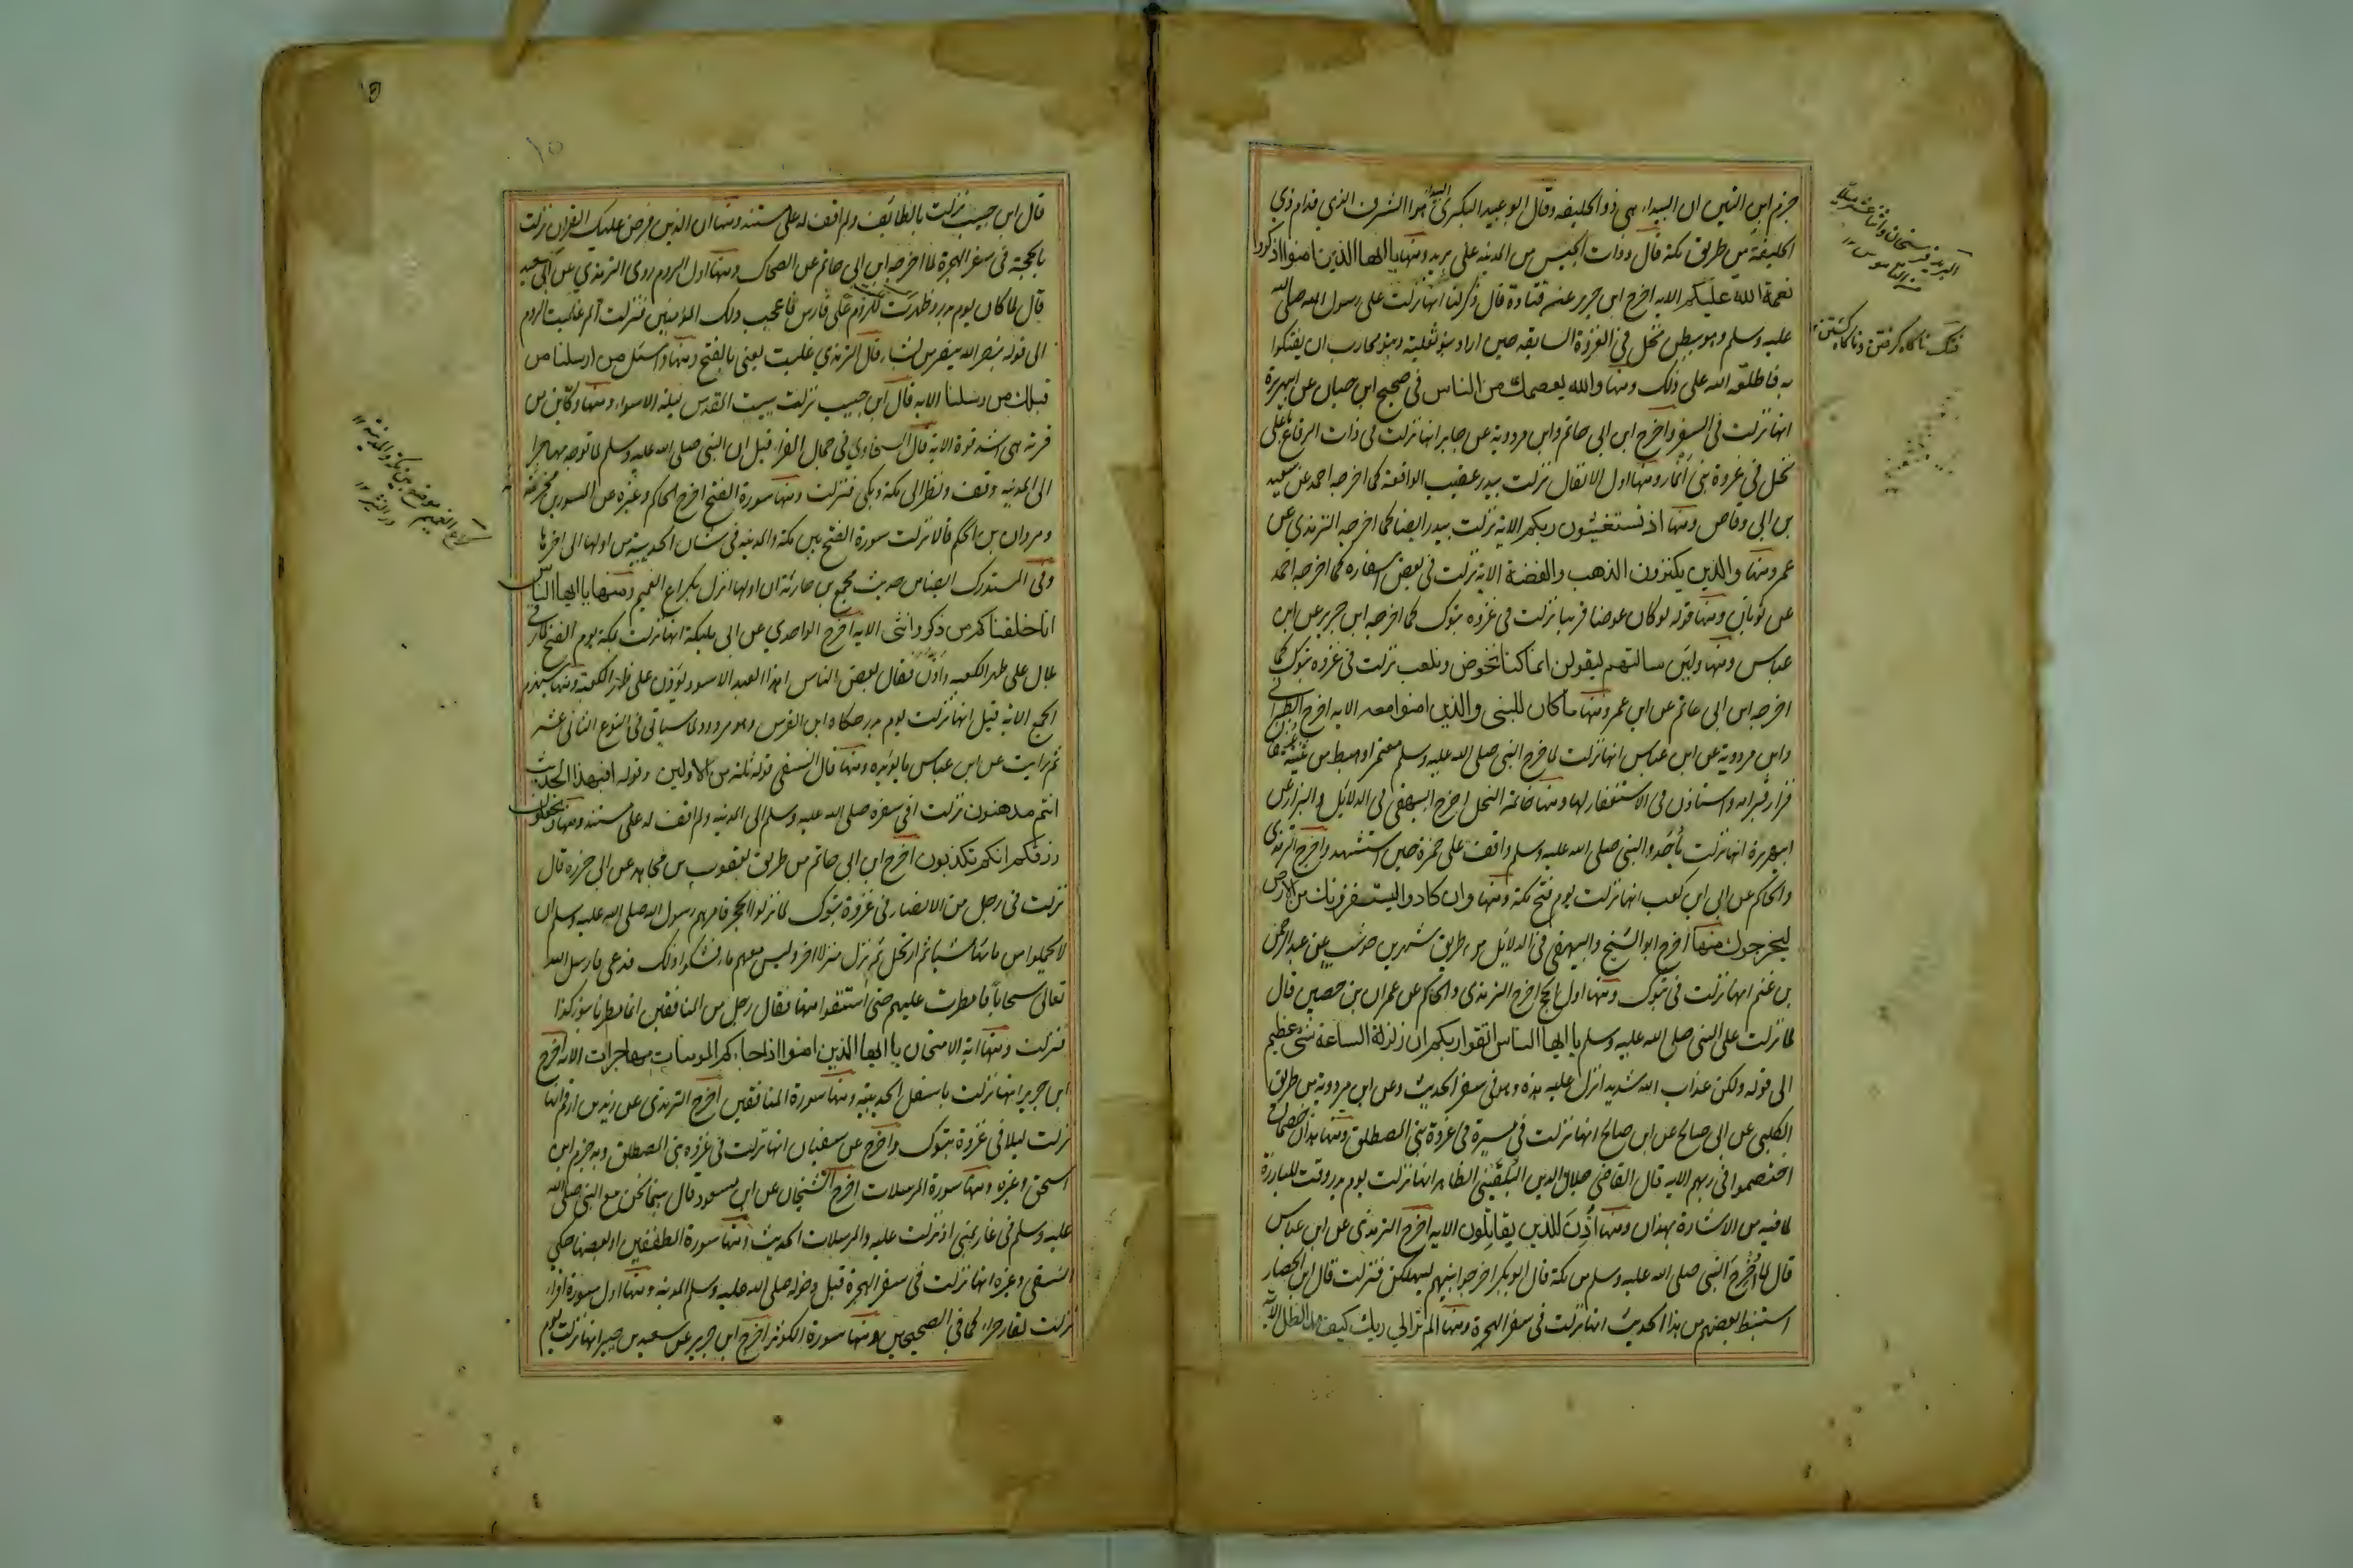 جزم ابن التين ان البيداء هي ذو الحليفه وقال ابو عبيد البكرى البيداء هو الشرف الذي قدام ذى
الحليفة من طريق مكة قال وذات الجيش من المدينه على بريد ومنها يا ايها الذين امنوا اذكروا
نعمة الله عليكم الايه اخرج ابن جرير عن قتادة قال ذكر لنا انها نزلت على رسول الله صلى الله
عليه وسلم وهو ببطن نخل في الغزوة السابقه حين اراد بنو ثعلبة وبنو محارب ان يفتكوا
به فاطلعه الله على ذلك ومنها والله يعصمك من الناس فى صحيح ابن حبان عن ابى هريرة
انها نزلت فى السفر واخرج ابن ابى حاتم وابن مردوية عن جابر انها نزلت فى ذات الرقاع باعلى
نخل في غزوة بنى انمار ومنها اول الانفال نزلت ببدر عقيب الواقعة كما اخرجه احمد عن سعيد
بن ابى وقاص ومنها اذ تستغيثون ربكم الاية نزلت ببدر ايضا كما اخرجه الترمذي عن
عمر ومنها والذين يكنزون الذهب والفضة الاية نزلت فى بعض اسفاره كما اخرجه احمد
عن ثوبان ومنها قوله لو كان عرضا قريبا نزلت فى غزوه تبوك كما اخرجه ابن جرير عن ابن
عباس ومنها ولئن سالتهم ليقولن انما كنا نخوض ونلعب نزلت فى غزوه تبوك كما
اخرجه ابن ابى حاتم عن ابن عمر ومنها ما كان للنبى والذين امنوا معه الايه اخرج الطبرانى
وابن مردوية عن ابن عباس انها نزلت لما خرج النبى صلى الله عليه وسلم معتمرا وهبط من ثنية عسفان
فزار قبر امه واستاذن فى الاستغفار لها ومنها خاتمة النحل اخرج البيهقى فى الدلائل والبزار عن
ابى هريرة انها نزلت باحد والنبى صلى الله عليه وسلم واقف على حمزة حين استشهد واخرج الترمذى
والحاكم عن ابى ابن كعب انها نزلت يوم فتح مكة ومنها وان كادوا ليستفزونك من الارض
ليخرجوك منها اخرج ابو الشيخ والبيهقى فى الدلائل من طريق شهر بن حوشب عن عبد الرحمن
بن غنم انها نزلت فى تبوك ومنها اول الحج اخرج الترمذى والحاكم عن عمران بن حصين قال
لما نزلت على النبى صلى الله عليه وسلم يا ايها الناس اتقوا ربكم ان زلزلة الساعة شئ عظيم
الى قوله ولكن عذاب الله شديد انزل عليه هذه وهو فى سفر الحديث وعن ابن مردوية من طريق
الكلبى عن ابى صالح عن ابن صالح انها نزلت فى مسيرة فى غزوة بنى المصطلق ومنها هذان خصمان
اختصموا فى ربهم الايه قال القاضى جلال الدين البلقينى الظاهر انها نزلت يوم بدر وقت المبارزة
لما فيه من الاشارة بهذان ومنها اُذِنَ للذين يقاتلون الايه اخرج الترمذى عن ابن عباس
قال لما اُخرج النبى صلى الله عليه وسلم من مكة قال ابو بكر اخرجوا نبيهم ليهلكن فنزلت قال ابن الحصار
استنبط بعضهم من هذا الحديث انها نزلت فى سفر الهجرة ومنها الم تر الى ربك كيف مد الظل الآية
البريد فرسخان واثنا عشر ميلا
من القاموس ١٢
فتك ناگاه گرفتن و ناگاه كشتن
١٥
١٥
قال ابن حبيب نزلت بالطائف ولم اقف له على مستند ومنها ان الذى فرض عليك القران نزلت
بالجحفة فى سفر الهجرة لما اخرجه ابن ابى حاتم عن الضحاك ومنها اول الروم روى الترمذي عن ابى سعيد
قال لما كان يوم بدر وظهرت للروم على فارس فاعجب ذلك المؤمنين فنزلت الم غلبت الروم
الى قوله بنصر الله ينصر من يشاء قال الترمذي غلبت يعنى بالفتح ومنها واسئل من ارسلنا من
قبلك من رسلنا الايه قال ابن حبيب نزلت ببيت المقدس ليلة الاسراء ومنها وكاين من
قرية هى اشد قوة الاية قال السخاوي فى جمال القراء قيل ان النبى صلى الله عليه وسلم لما توجه مهاجرا
الى المدينه وقف ونظر الى مكة وبكى فنزلت ومنها سورة الفتح اخرج الحاكم وغيره عن المسور بن مخرمة
ومروان بن الحكم قالا نزلت سورة الفتح بين مكة والمدينه فى شان الحديبية من اولها الى اخرها
وفى المستدرك ايضا من حديث مجمع بن جارية ان اولها انزل بكراع الغميم ومنها يا ايها الناس
انا خلقناكم من ذكر وانثى الايه اخرج الواحدي عن ابى مليكة انها نزلت بمكة يوم الفتح لما رقى
بلال على ظهر الكعبه واذن فقال بعض الناس اهذا العبد الاسود يؤذن على ظهر الكعبة ومنها سيهزم
الجمع الاية قيل انها نزلت يوم بدر حكاه ابن الفرس وهو مردود لما سياتى فى النوع الثانى عشر
ثم رايت عن ابن عباس ما يؤيده ومنها قال النسفى قوله ثلة من الاولين وقوله افبهذا الحديث
انتم مدهنون نزلت فى سفره صلى الله عليه وسلم الى المدينه ولم اقف له على مستند ومنها وتجعلون
رزقكم انكم تكذبون اخرج ابن ابى حاتم من طريق يعقوب بن مجاهد عن ابى حزره قال
نزلت فى رجل من الانصار فى غزوة تبوك لما نزلوا الحجر فامرهم رسول الله صلى الله عليه وسلم ان
لا يحملوا من مائها شيئا ثم ارتحل ثم نزل منزلا اخر وليس معهم ماء فشكوا ذلك فدعى فارسل الله
تعالى سحابا فامطرت عليهم حتى استقوا منها فقال رجل من المنافقين انما مطرنا بنوء كذا
فنزلت ومنها اية الامتحان يا ايها الذين امنوا اذا جاءكم المومنات مهاجرات الاية اخرج
ابن جرير انها نزلت باسفل الحديبية ومنها سورة المنافقين اخرج الترمذى عن زيد بن ارقم انها
نزلت ليلا فى غزوة تبوك واخرج عن سفيان انها نزلت فى غزوه بنى المصطلق وبه جزم ابن
اسحق وغيره ومنها سورة المرسلات اخرج الشيخان عن ابن مسعود قال بينما نحن مع النبى صلى الله
عليه وسلم فى غار بمنى اذ نزلت عليه والمرسلات الحديث ومنها سورة المطففين او بعضها حكى
النسفى وغيره انها نزلت فى سفر الهجرة قبل دخوله صلى الله عليه وسلم المدينه ومنها اول سورة اقراء
نزلت بغار حراء كما فى الصحيحين ومنها سورة الكوثر اخرج ابن جرير عن سعيد بن جبير انها نزلت يوم
كراع الغميم موضع بين مكة والمدينة ١٢